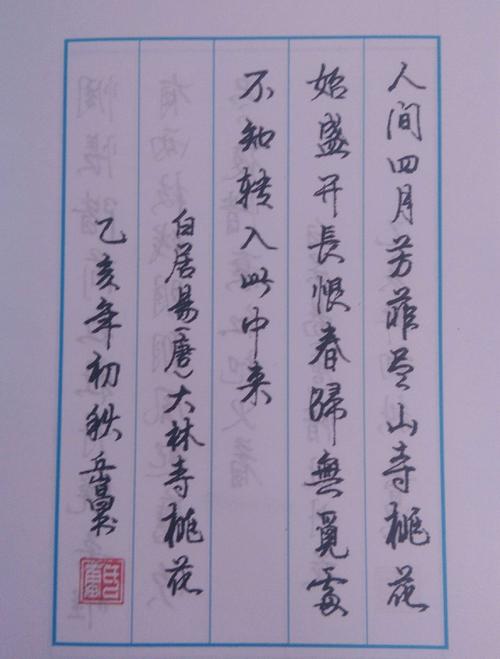 人间四月芳菲尽山寺桃花
始盛开長恨春歸無覓處
不知转入此中来
白居易(唐)大林寺桃花
乙亥年初秋岳